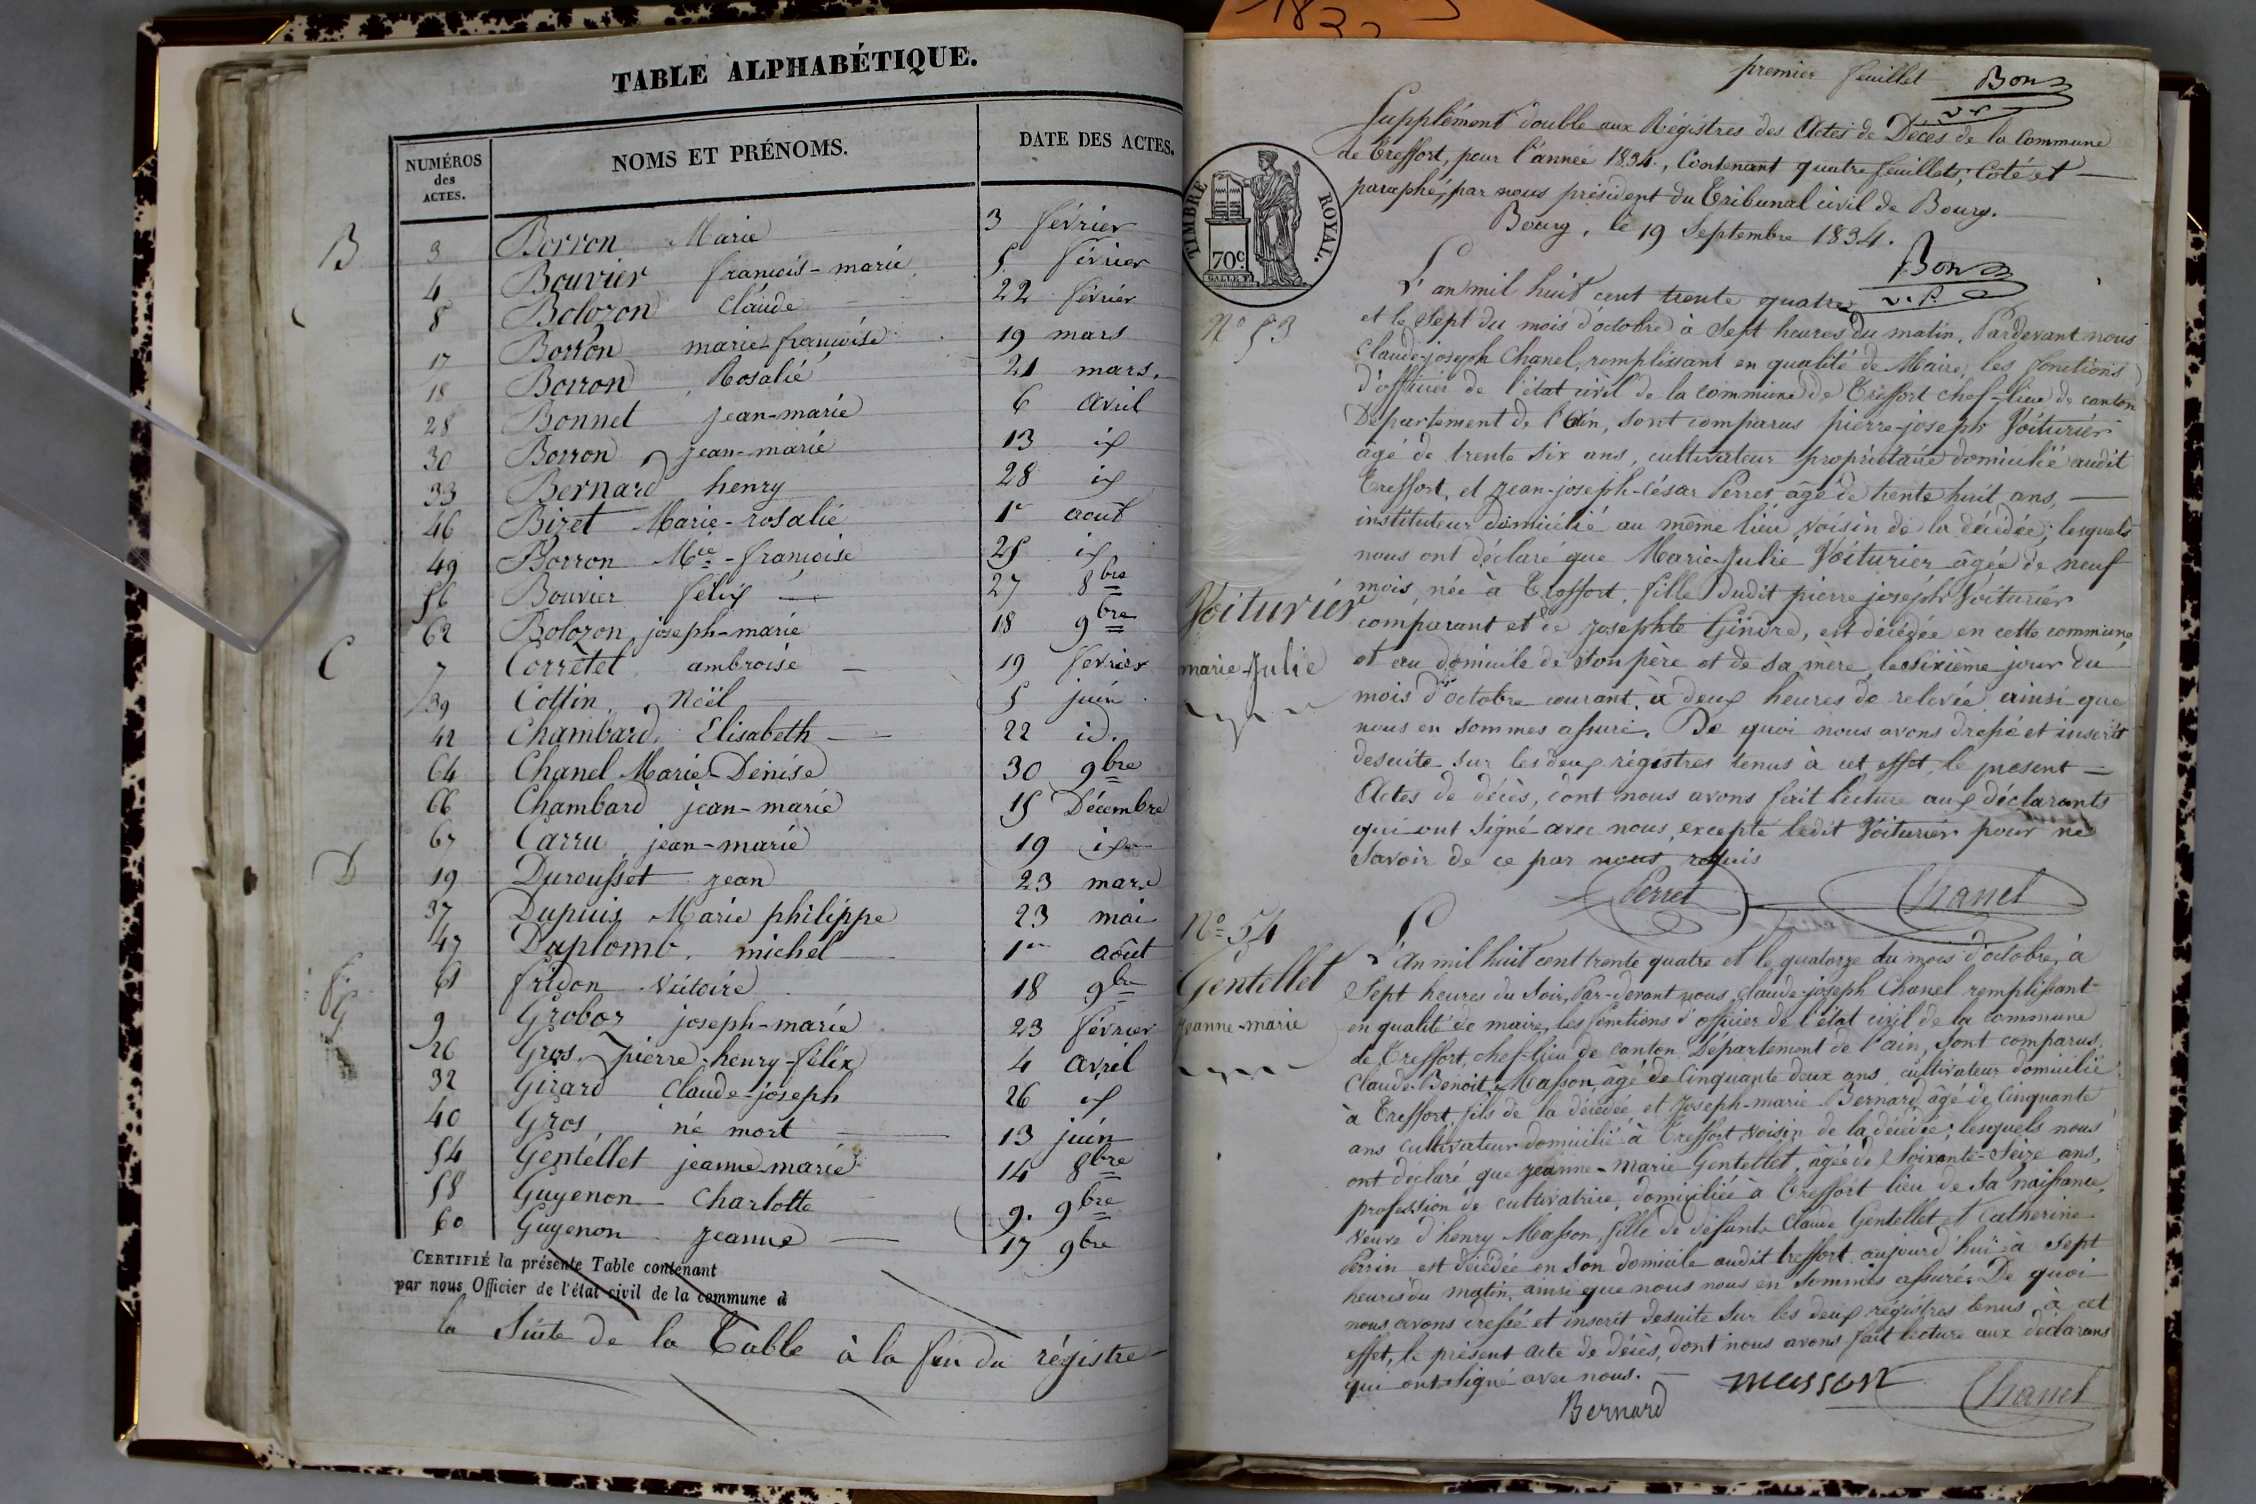 TABLE ALPHABÉTIQUE.
NUMÉROS des ACTES. NOMS ET PRÉNOMS. DATE DES ACTES.
B 3 Borron Marie 3 février
4 Bouvier françois-marie 5 février
8 Bolozon Claude 22 février
17 Borron marie françoise 19 mars
18 Borron Rosalie 21 mars.
28 Bonnet jean-marie 6 avril
30 Borron jean-marie 13 id
33 Bernard henry 28 id
46 Biret Marie-rosalie 1er août
49 Borron Mie-françoise 25 id
56 Bouvier félix 27 8bre
62 Bolozon joseph-marie 18 9bre
C 7 Corretet ambroise 19 fevrier
39 Cottin Noël 5 juin
42 Chambard Elisabeth 22 id.
64 Chanel Marie-Denise 30 9bre
66 Chambard jean-marie 15 Décembre
67 Carru jean-marie 19 id
D 19 Durousset jean 23 mars
37 Dupuis Marie philippe 23 mai
47 Duplomb. michel 1er août
f 61 fridon victoire 18 9bre
G 9 Groboz joseph-marie 23 février
26 Gros. pierre-henry-félix 4 avril
32 Girard Claude-joseph 26 id
40 Gros, né mort 13 juin
54 Gentellet jeanne marie 14 8bre
58 Guyenon Charlotte 9. 9bre
60 Guyenon jeanne 17 9bre
CERTIFIÉ la présente Table contenant
par nous Officier de l'état civil de la commune d
la Suite de la Table à la fin du régistre
1833
premier feuillet Bon
v.p.
Supplément double aux Régistres des Actes de Décès de la Commune
de Treffort, pour l'année 1834., Contenant quatre feuillets, Coté et
paraphé, par nous président du Tribunal civil de Bourg.
Bourg, le 19 Septembre 1834.
Bon
v.p.
TIMBRE ROYAL.
70c.
GALLE F.
L'an mil huit cent trente quatre
No 53
et le sept du mois d'octobre à sept heures du matin, Pardevant nous
Claude-joseph Chanel, remplissant en qualité de Maire, les fonctions
d'officier de l'état civil de la commune de Treffort chef-lieu de canton
Département de l'Ain, sont comparus pierre-joseph Voiturier
âgé de trente six ans, cultivateur propriétaire domicilié audit
Treffort, et jean-joseph-césar Perret âgé de trente huit ans,
instituteur domicilié au même lieu, voisin de la décédée; lesquels
nous ont déclaré que Marie-Julie Voiturier âgée de neuf
mois, née à Treffort, fille dudit pierre joseph Voiturier
Voiturier
comparant et de josephte Gindre, est décédée en cette commune
marie-Julie
et au domicile de son père et de sa mère, le sixième jour du
mois d'octobre courant, à deux heures de relevée ainsi que
nous en sommes assuré. De quoi nous avons dressé et inscrit
desuite sur les deux régistres tenus à cet effet, le présent
Actes de décès, dont nous avons fait lecture aux déclarants
qui ont signé avec nous, excepté ledit Voiturier pour ne
savoir de ce par nous requis
Perret Chanel
No 54
L'an mil huit cent trente quatre et le quatorze du mois d'octobre, à
Gentellet
sept heures du soir, Par-devant nous Claude-joseph Chanel remplissant
jeanne-marie
en qualité de maire, les fonctions d'officier de l'état civil de la commune
de Treffort, chef-lieu de canton Département de l'ain, sont comparus
Claude-Benoit Masson, âgé de Cinquante deux ans, cultivateur domicilié
à Treffort, fils de la décédée, et Joseph-marie Bernard âgé de Cinquante
ans cultivateur domicilié à Treffort voisin de la décédée; lesquels nous
ont déclaré que jeanne-marie Gentellet, âgée de Soixante-Seize ans,
profession de cultivatrice, domiciliée à Treffort lieu de sa naissance,
veuve d'henry Masson, fille de défunts Claude Gentellet et Catherine
Perrin est décédée en son domicile audit treffort aujourd'hui à sept
heures du matin, ainsi que nous nous en sommes assuré. De quoi
nous avons dressé et inscrit desuite sur les deux régistres tenus à cet
effet, le présent acte de décès, dont nous avons fait lecture aux déclarans
qui ont signé avec nous.
masson Chanel
Bernard